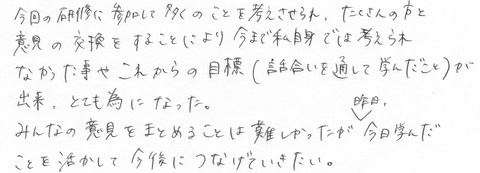 今回の研修に参加して多くのことを考えさせられ、たくさんの方と
意見の交換をすることにより今まで私自身では考えられ
なかった事やこれからの目標(話合いを通して学んだこと)が
出来、とても為になった。
みんなの意見をまとめることは難しかったが昨日、今日学んだ
ことを活かして今後につなげていきたい。